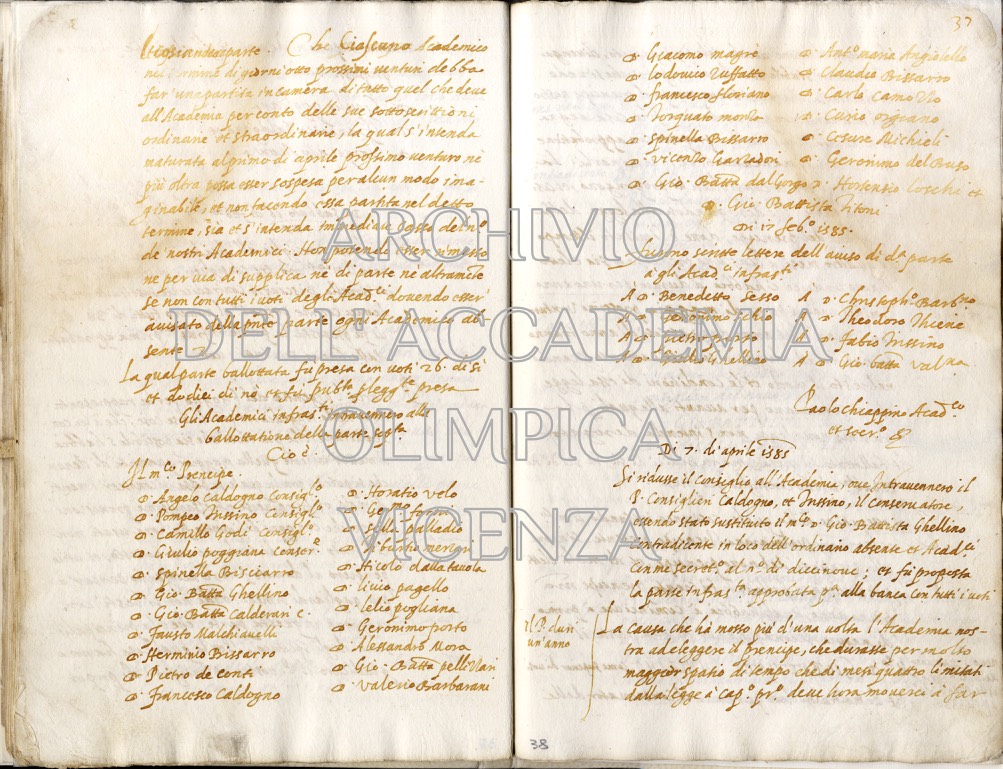 parte. Che Ciascuno Academico
nel termine di giorni otto prossimi venturi debba
far una partita in camera di tutto quel che deve
all'Academia per conto delle sue sottoscrittioni
ordinarie et straordinarie, la qual s'intenda
maturata al primo di aprile prossimo venturo nè
più oltra possa esser sospesa per alcun modo ima-
ginabile, et non facendo essa partita nel detto
termine, sia et s'intenda casso del nº
de nostri Academici. Non potendo esser rimesso
ne per via di supplica nè di parte nè altramẽte
se non con tutti i voti degli Acad.ci dovendo esser
avisato della pñte parte ogni Academico ab
sente
La qual parte ballottata fu presa con voti 26. di sì
et dodici di nò et fù presa
Gli Academici infras.ti intravennero alla
ballottatione della parte
Cioè
Il m.co Prencipe.
D. Angelo Caldogno Consigl.o
D. Pompeo Trissino Consigl.o
D. Camillo Godi Consigl.o
D. Giulio poggiana
D. Spinella Bisciarro
D. Gio. Batta Ghellino
D. Gio. Batta Calderari C.
D. Fausto Malchiavelli
D. Herminio Bissarro
D. Pietro de conti
D. Francesco Caldogno
D. Horatio Velo
D.
D. Silla palladio
D.
D. Nicolo dalla tavola
D. livio pagello
D. lelio pogliana
D. Geronimo porto
D. Alessandro Mora
D. Gio. Batta
D. Valerio Barbarani
37
D. Giacomo magrè
D. lodovico Ruffatto
D. francesco floriano
D. Torquato
D. Spinella Bissarro
D. Vicenzo Garzadori
D. Gio. Batta dal Gorgo
D. Ant.o maria Angiolello
D. Claudio Bissarro
D. Carlo
D. Curio orgiano
D. Michieli
D. Geronimo del Buso
D. Hortensio loschi et
D. Gio. Battista Titoni
Di 17 feb.o 1585.
Furono scritte lettere dell'aviso di d.a parte
à gli Acad.ci infras.ti
A D. Benedetto Sesso
A D. Geronimo schio
A D. Pietro porto
A D. Ghellino
A D. Christoph.o Barb.no
A D. Theodoro Thiene
A D. Fabio Trissino
A D. Gio. batta Val.na
Paolo chiappino Acad.co
et secr.o
Di 7. di aprile 1585
Si ridusse il consiglio all'Academia, ove intravennero il
P. Consiglieri Caldogno, et Trissino, il conservatore,
essendo stato sustituito il m.co D. Gio. Battista Ghellino
contradicente in loco dell'ordinario absente et Acad.ci
con me secret.o al nº di diecinove; et fù proposta
la parte infras.ta approbata p.a alla banca con tutti i voti
Il P. duri
un'anno
La causa che hà mosso più d'una volta l'Academia nos-
tra ad eleggere il prencipe, che durasse per molto
maggior spatio di tempo che di mesi quattro limitati
dalla legge à cap.o pr.o deve hora moverci à far
38
ARCHIVIO
DELL'ACCADEMIA
OLIMPICA
VICENZA